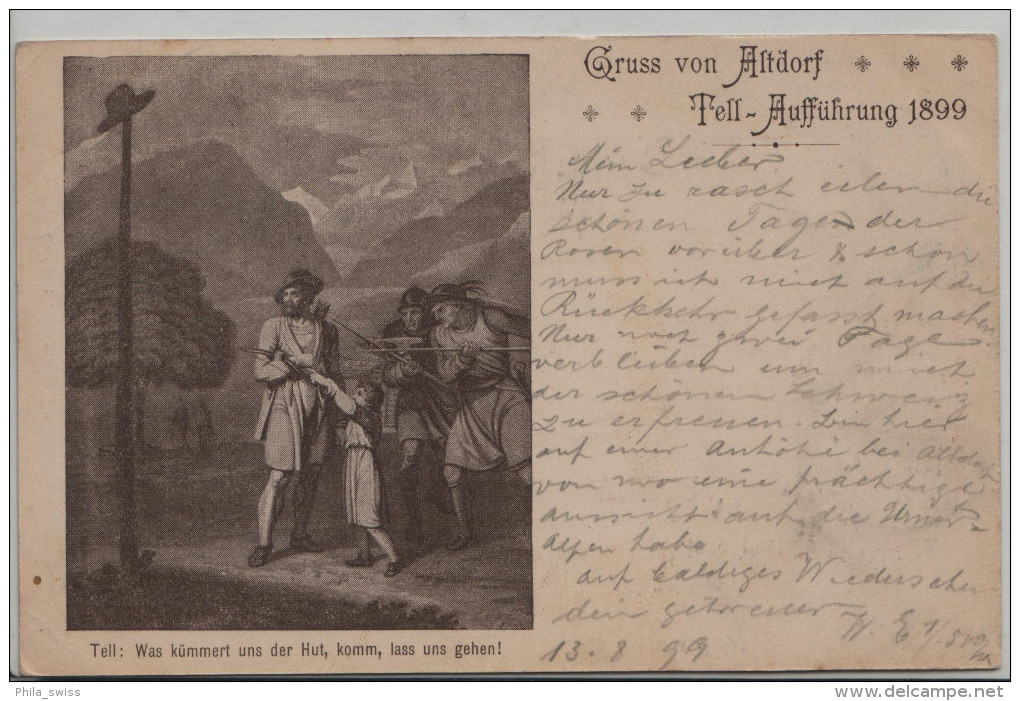 Gruss von Altdorf
Tell-Aufführung 1899
Mein Lieber
Nur zu rasch eilen die
schönen Tage der
Rosen vorüber & schon
muss ich mich auf die
Rückkehr gefasst machen.
Nur noch zwei Tage
verbleiben um mich
der schönen Schweiz
zu erfreuen. Bin hier
auf einer Anhöhe bei Altdorf
von wo eine prächtige
aussicht auf die Urner-
Alpen habe.
auf baldiges Wiedersehen
dein getreuer
13. 8 99
Tell: Was kümmert uns der Hut, komm, lass uns gehen!
Phila_swiss
www.delcampe.net